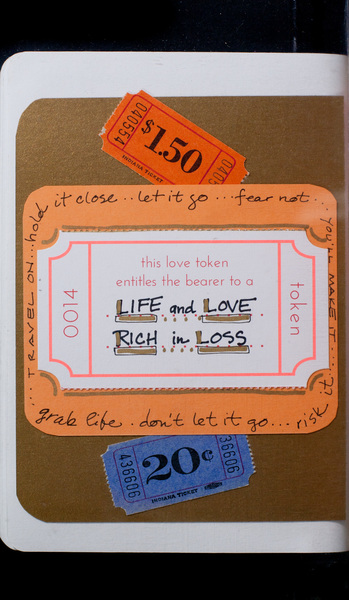 040554
$1.50
0405
INDIANA TICKET
hold it close.. let it go ... fear not...
YOU'LL MAKE IT...
0014
this love token
entitles the bearer to a
LIFE and LOVE
RICH in LOSS
token
...TRAVEL ON...
grab life.. don't let it go... risk it
436606
20¢
36606
INDIANA TICKET